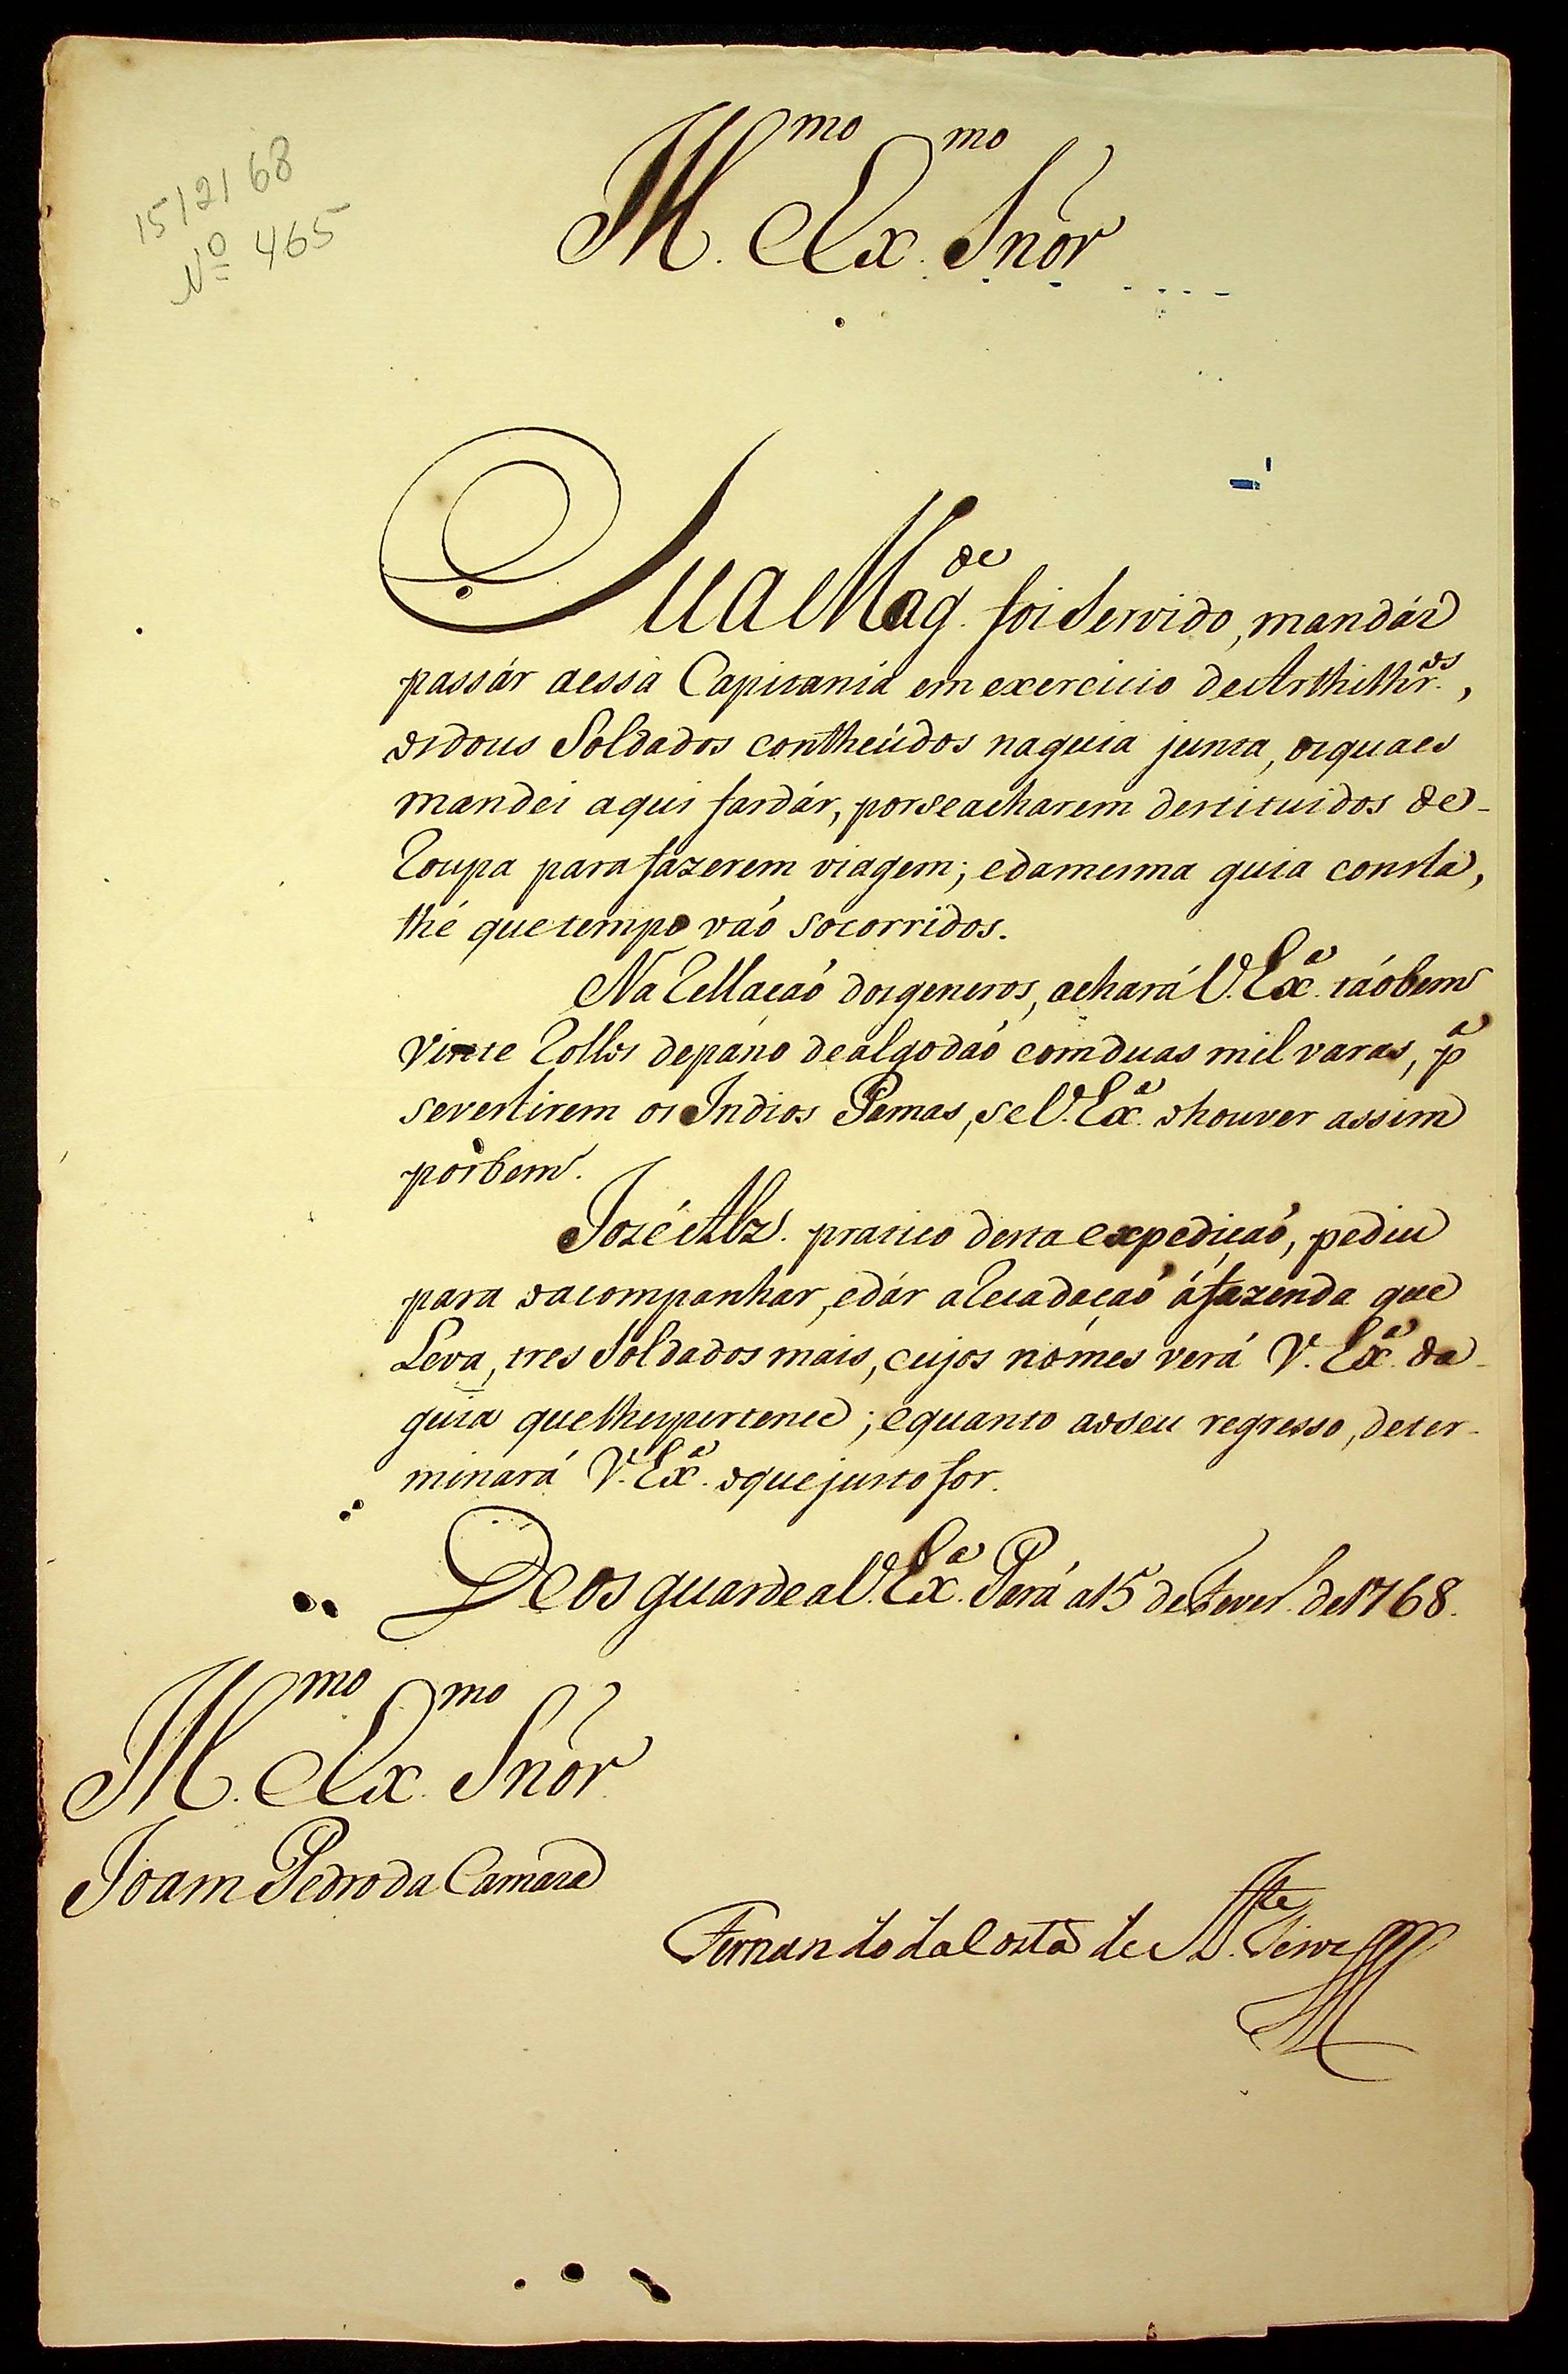 15/2/68
Nº 465
Ill.mo Ex.mo Snõr
Sua Mag.de foi Servido, mandár
passár a essa Capitania em exercicio de Arthilhr.os,
os dous Soldados contheúdos na guia junta, os quaes
mandei aqui fardár, por se acharem destituidos de
Roupa para fazerem viagem; e da mesma guia consta,
thé que tempo vaó socorridos.
Na Rellaçaó dos generos, achará V. Ex.a táobem
vinte Rollos de páno de algodaó com duas mil varas, p.a
se vestirem os Indios Pamas, se V. Ex.a o houver assim
por bem.
José Alz. pratico desta expediçaó, pediu
para o acompanhar, e dár arecadaçaó á fazenda que
Leva, tres Soldados mais, cujos nómes verá V. Ex.a da
guia que lhes pertence; e quanto ao seu regresso, deter-
minará V. Ex.a o que justo for.
Deos guarde a V. Ex.a Pará a 15 de Fever.º de 1768.
Ill.mo Ex.mo Snõr
Joam Pedro da Camara
Fernando da Costa de At.te Teive